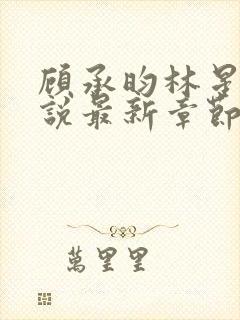 顾承昀林星
說最新章節
萬里里